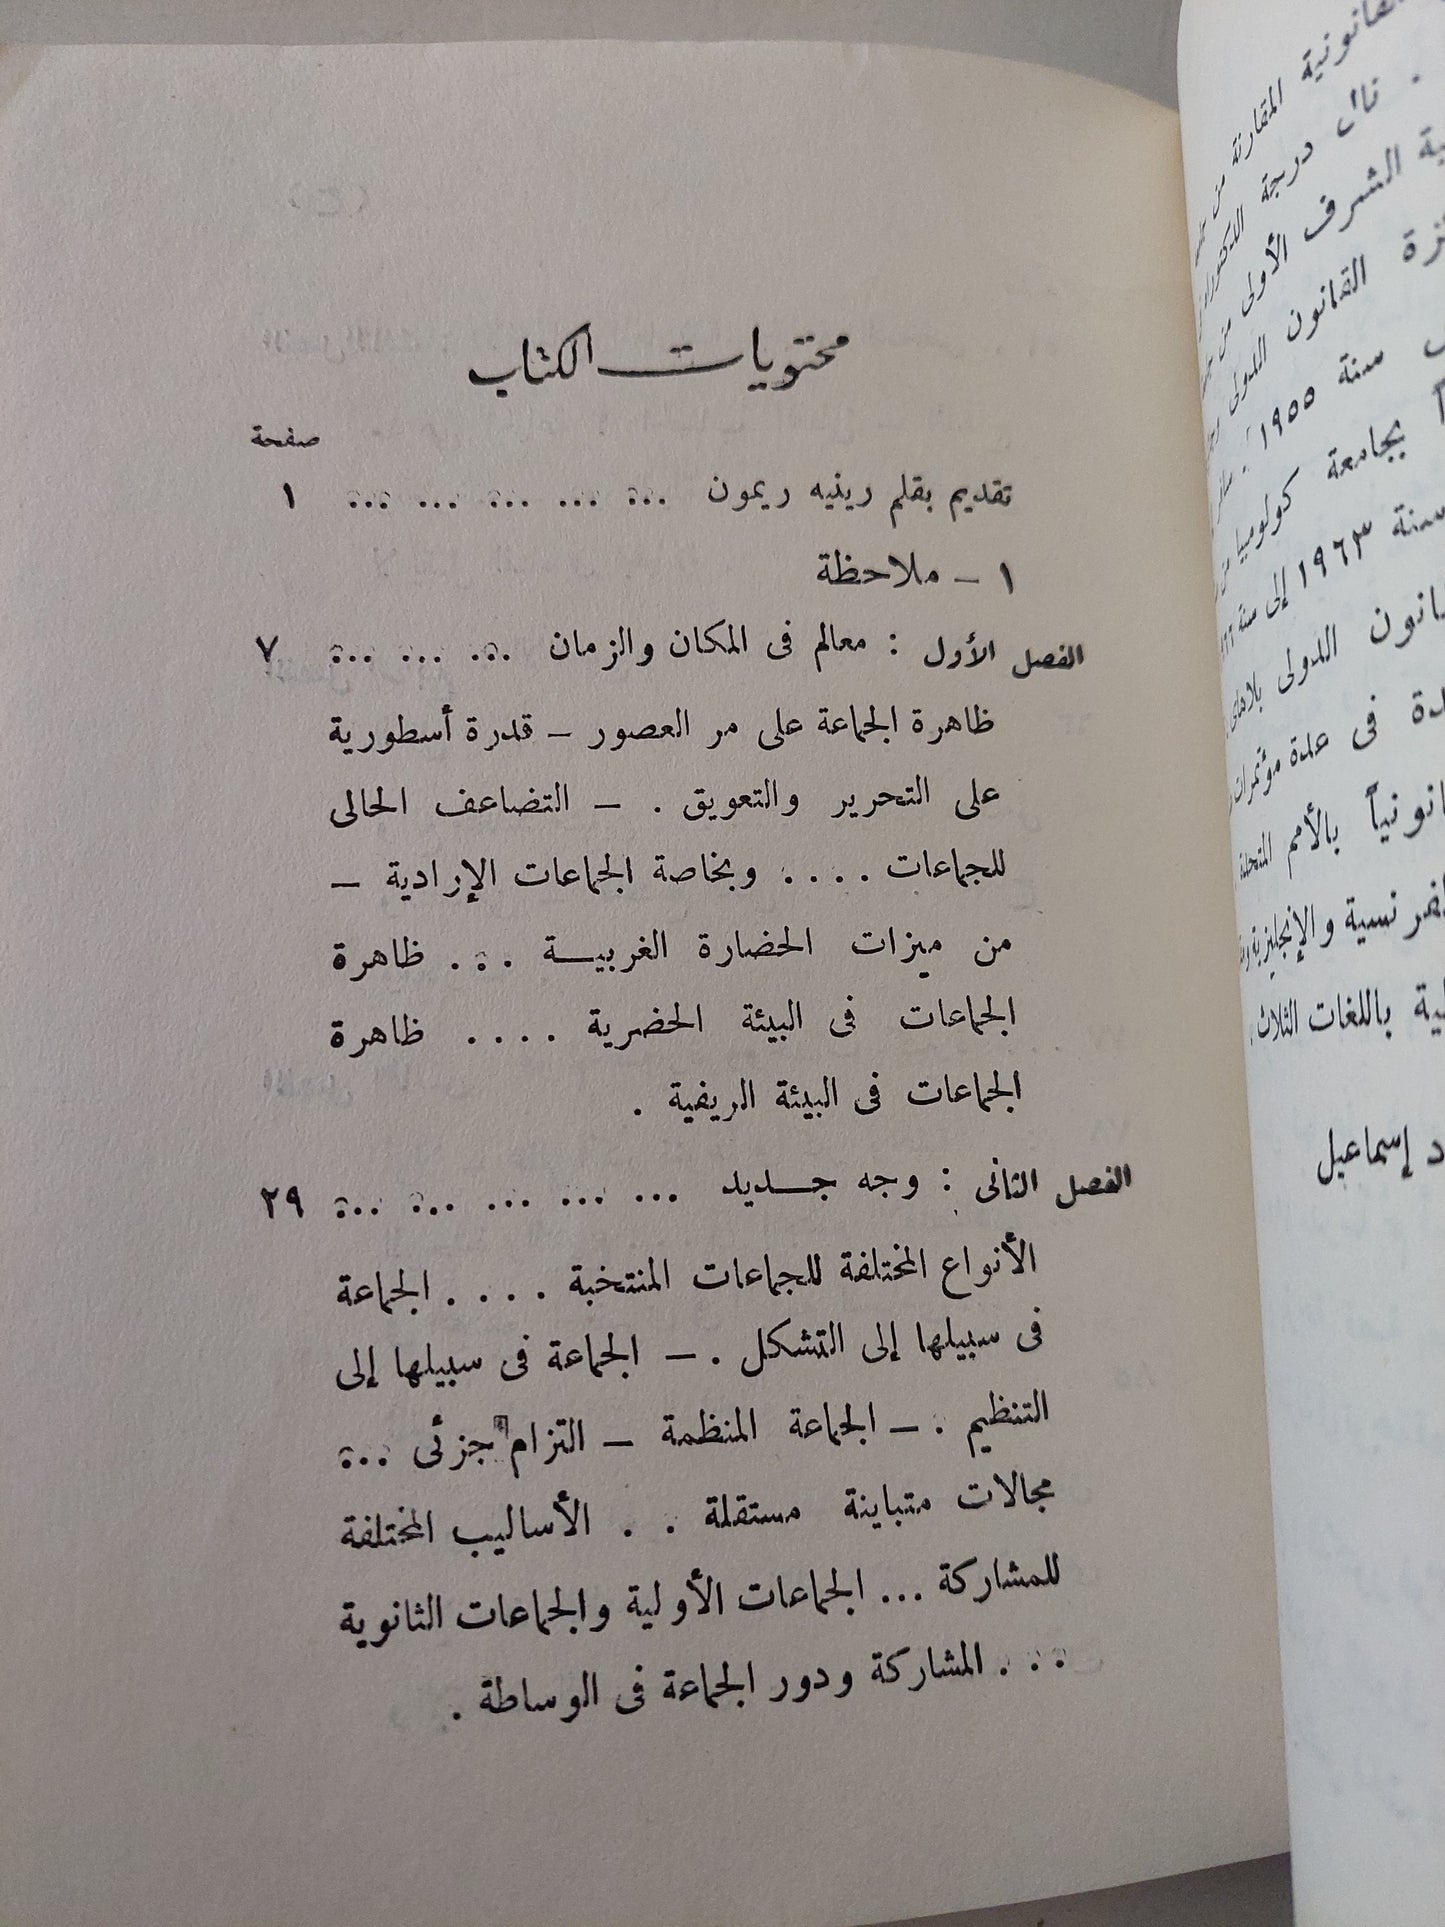 محتويات الكتاب
صفحة
تقديم بقلم رينيه ريمون ... ... ... ... ... ١
١ – ملاحظة
الفصل الأول : معالم فى المكان والزمان ... ... ... ٧
ظاهرة الجماعة على مر العصور – قدرة أسطورية
على التحرير والتعويق . – التضاعف الحالى
للجماعات . . . . وبخاصة الجماعات الإرادية –
من ميزات الحضارة الغربيــة . . . ظاهرة
الجماعات فى البيئة الحضرية . . . . ظاهرة
الجماعات فى البيئة الريفية .
الفصل الثانى : وجه جــديد ... ... ... ... ... ٢٩
الأنواع المختلفة للجماعات المنتخبة . . . . الجماعة
فى سبيلها إلى التشكل . – الجماعة فى سبيلها إلى
التنظيم . – الجماعة المنظمة – التزام جزئى ...
مجالات متباينة مستقلة . . الأساليب المختلفة
للمشاركة ... الجماعات الأولية والجماعات الثانوية
. . . المشاركة ودور الجماعة فى الوساطة .
المقارنة من
. نال درجة الدكتوراه
الشرف الأولى من
القانون الدولى
سنة ١٩٥٥ .
بجامعة كولومبيا من
سنة ١٩٦٣ إلى سنة
الدولى بلاهاى
فى عدة مؤتمرات
بالأمم المتحدة
والإنجليزية
باللغات الثلاث .
إسماعيل